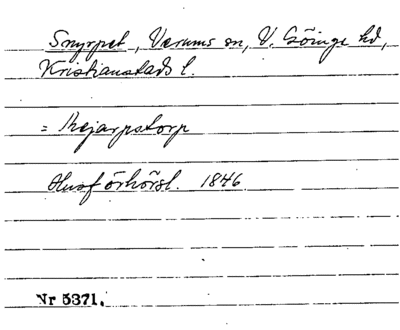 Snyrpet, Verums sn, V. Göinge hd,
Kristianstads l.
= Skejarpstorp
Husförhörsl. 1846
Nr 5371.